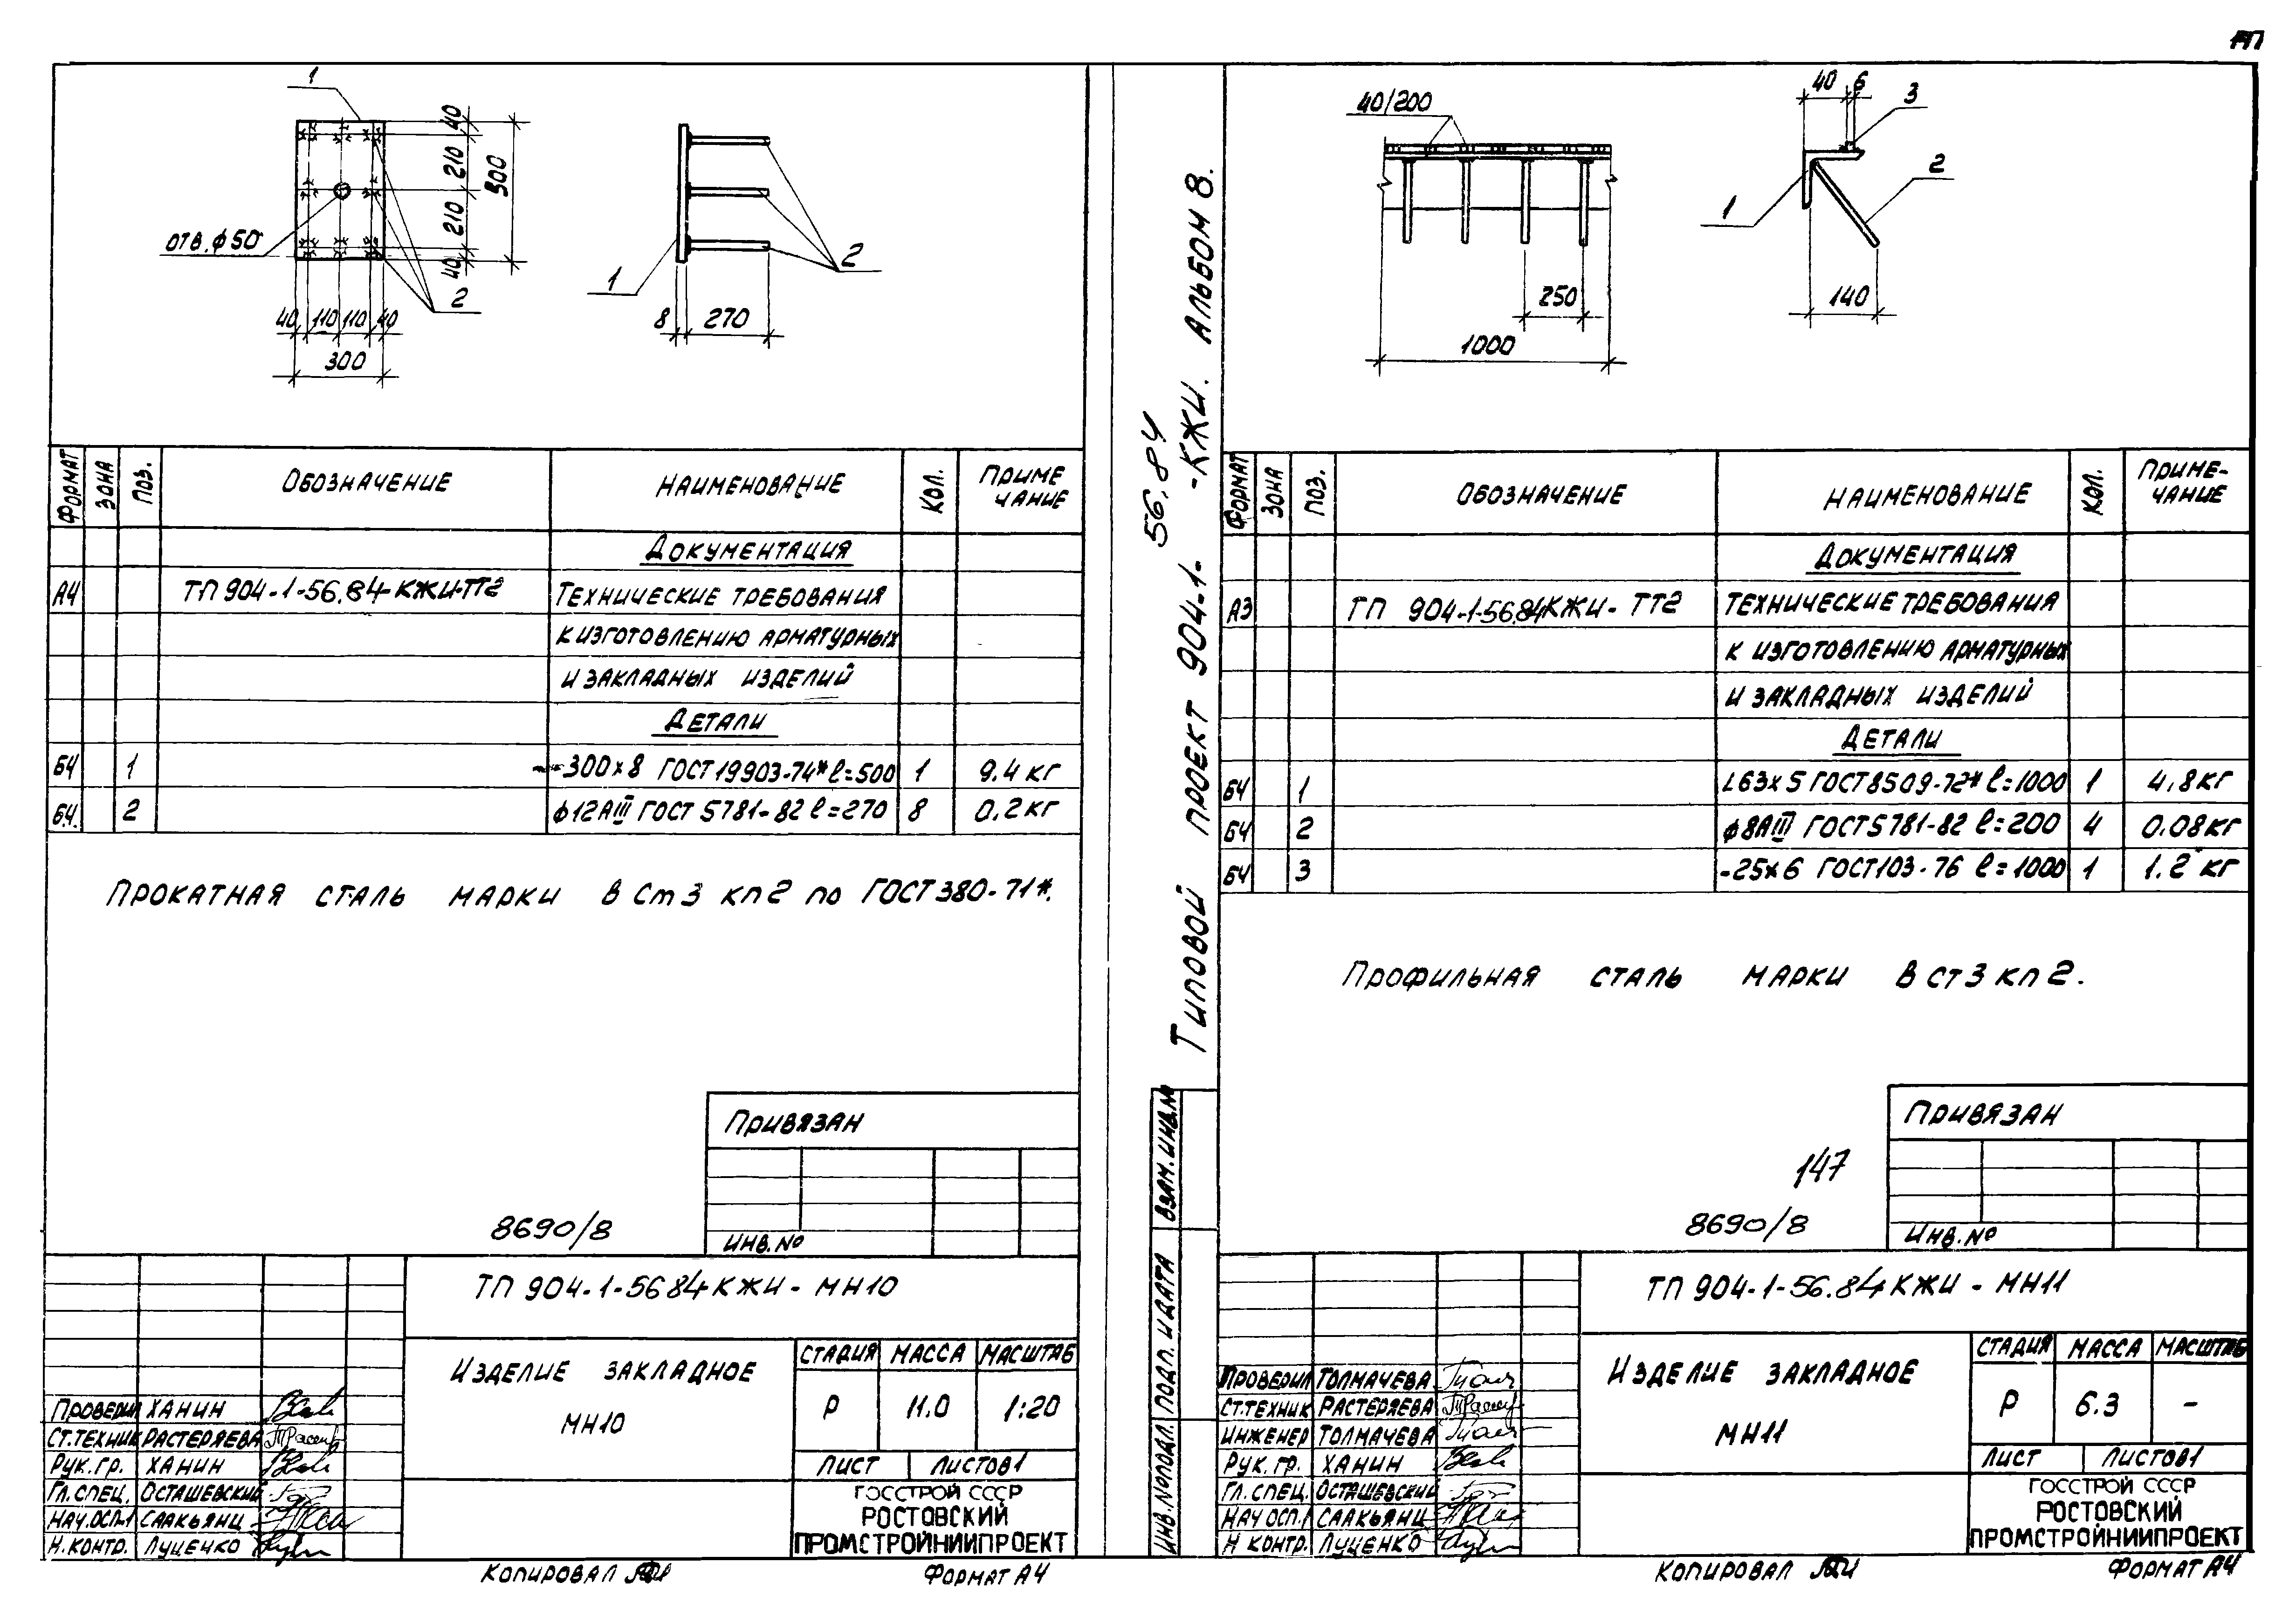 1
40
210
500
210
40
отв. ф50
2
40 110 110 40
300
1
2
8 270
ФОРМАТ ЗОНА ПОЗ. ОБОЗНАЧЕНИЕ НАИМЕНОВАНИЕ КОЛ. ПРИМЕ
ЧАНИЕ
ДОКУМЕНТАЦИЯ
А4 ТП 904-1-56.84-КЖИ-ТТ2 ТЕХНИЧЕСКИЕ ТРЕБОВАНИЯ
К ИЗГОТОВЛЕНИЮ АРМАТУРНЫХ
И ЗАКЛАДНЫХ ИЗДЕЛИЙ
ДЕТАЛИ
БЧ 1 -300х8 ГОСТ 19903-74* ℓ=500 1 9.4 кг
БЧ. 2 ф12АIII ГОСТ 5781-82 ℓ=270 8 0,2 кг
ПРОКАТНАЯ СТАЛЬ МАРКИ В Ст 3 кп 2 по ГОСТ 380-71*.
ПРИВЯЗАН
8690/8
ИНВ. №
ТП 904-1-5684 КЖИ - МН10
ИЗДЕЛИЕ ЗАКЛАДНОЕ
МН10
СТАДИЯ МАССА МАСШТАБ
Р 11.0 1:20
ЛИСТ ЛИСТОВ 1
ПРОВЕРИЛ ХАНИН
СТ.ТЕХНИК РАСТЕРЯЕВА
РУК. ГР. ХАНИН
ГЛ. СПЕЦ. ОСТАШЕВСКИЙ
НАЧ.ОСП-1 СААКЬЯНЦ
Н.КОНТР. ЛУЦЕНКО
ГОССТРОЙ СССР
РОСТОВСКИЙ
ПРОМСТРОЙНИИПРОЕКТ
КОПИРОВАЛ
ФОРМАТ А4
ТИПОВОЙ ПРОЕКТ 904-1- 56.84 -КЖИ. АЛЬБОМ 8.
ВЗАМ. ИНВ.№
ПОДП. И ДАТА
ИНВ. № ПОДЛ.
40/200
250
1000
40 6
3
2
1
140
ФОРМАТ ЗОНА ПОЗ. ОБОЗНАЧЕНИЕ НАИМЕНОВАНИЕ КОЛ. ПРИМЕ-
ЧАНИЕ
ДОКУМЕНТАЦИЯ
А3 ТП 904-1-56.84 КЖИ-ТТ2 ТЕХНИЧЕСКИЕ ТРЕБОВАНИЯ
К ИЗГОТОВЛЕНИЮ АРМАТУРНЫХ
И ЗАКЛАДНЫХ ИЗДЕЛИЙ
ДЕТАЛИ
БЧ 1 L63х5 ГОСТ 8509-72* ℓ=1000 1 4,8 кг
БЧ 2 ф8АIII ГОСТ 5781-82 ℓ=200 4 0.08 кг
БЧ 3 -25х6 ГОСТ 103-76 ℓ=1000 1 1.2 кг
ПРОФИЛЬНАЯ СТАЛЬ МАРКИ В СТ 3 КП 2.
ПРИВЯЗАН
147
8690/8
ИНВ. №
ТП 904-1-56.84 КЖИ - МН11
ИЗДЕЛИЕ ЗАКЛАДНОЕ
МН11
СТАДИЯ МАССА МАСШТАБ
Р 6.3 -
ЛИСТ ЛИСТОВ 1
ПРОВЕРИЛ ТОЛМАЧЕВА
СТ.ТЕХНИК РАСТЕРЯЕВА
ИНЖЕНЕР ТОЛМАЧЕВА
РУК. ГР. ХАНИН
ГЛ. СПЕЦ. ОСТАШЕВСКИЙ
НАЧ ОСП.1 СААКЬЯНЦ
Н КОНТР. ЛУЦЕНКО
ГОССТРОЙ СССР
РОСТОВСКИЙ
ПРОМСТРОЙНИИПРОЕКТ
КОПИРОВАЛ
ФОРМАТ А4